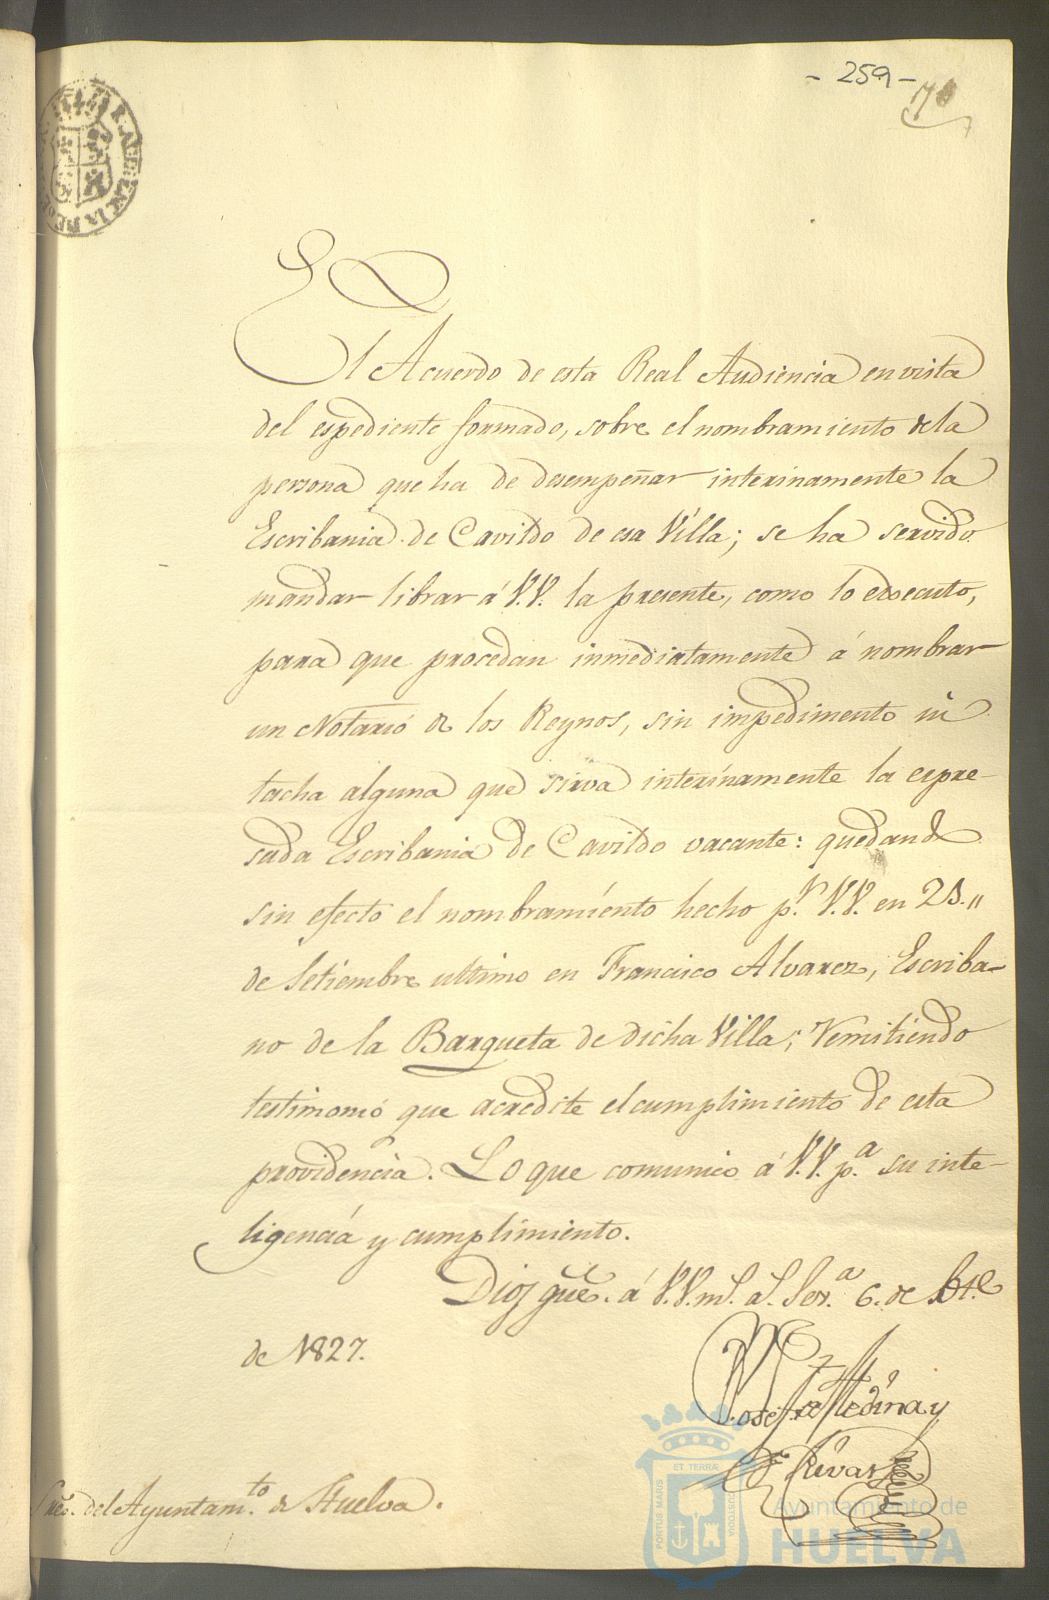 - 259 -
70
El Acuerdo de esta Real Audiencia en vista
del espediente formado, sobre el nombramiento de la
persona que ha de desempeñar interinamente la
Escribania de Cavildo de esa Villa; se ha servido
mandar librar á V.V. la presente, como lo executo,
para que procedan inmediatamente á nombrar
un Notario de los Reynos, sin impedimento ni
tacha alguna que sirva interinamente la espre-
sada Escribania de Cavildo vacante: quedando
sin efecto el nombramiento hecho p.r V.V. en 25.,,
de Setiembre ultimo en Francisco Alvarez, Escriba-
no de la Barqueta de dicha Villa; remitiendo
testimonio que acredite el cumplimiento de esta
providencia. Lo que comunico á V.V. p.a su inte-
ligencia y cumplimiento.
Dios gũe. á V.V. m.s a.s Sev.a 6. de
de 1827.
José de Medina y
Rivas
Sres. del Ayuntam.to de Huelva.
PORTUS MARIS
ET TERRÆ
CUSTODIA
Ayuntamiento de
HUELVA